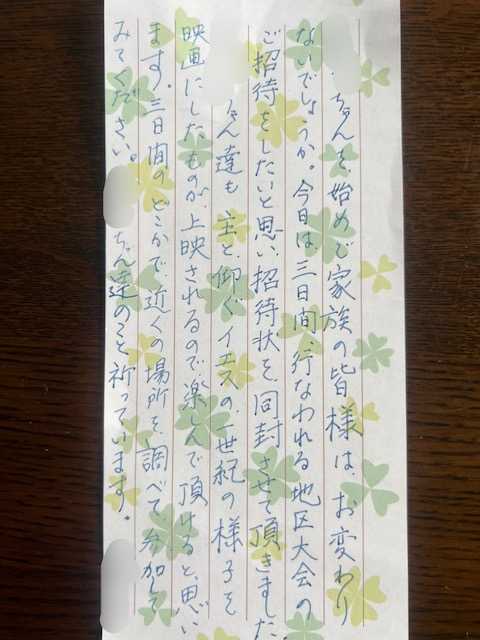 ちゃんを始めご家族の皆様は、お変わり
ないでしょうか。今日は三日間、行なわれる地区大会の
ご招待をしたいと思い招待状を同封させて頂きました
ちゃん達も主と仰ぐイエスの一世紀の様子を
映画にしたものが、上映されるので楽しんで頂けると思い
ます。三日間のどこかで近くの場所を調べて参加して
みてください。ちゃん達のこと祈っています。